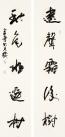 遠聲霜後樹
秋色水邊村